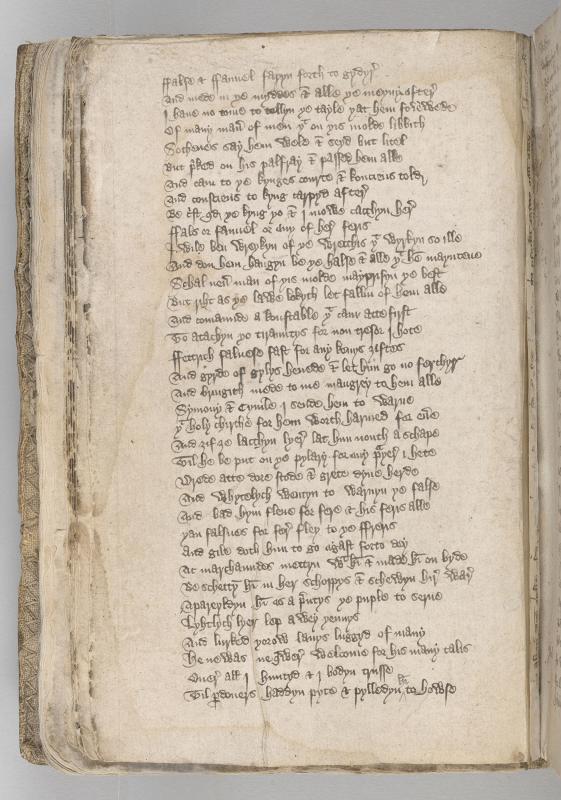 ffalse & ffauuel faryn forth to gydyr
And mede in ye myddes & alle ye meyny after
I haue no tome to tellyn ye tayle yat hem folewede
Of many man of men yt on yis molde libbith
Sothenes say hem wele & seyd but litel
But priked on his palfray & passed hem alle
And cam to ye kynges courte & konciens tolde
And consciens to kyng carpyd after
Be crist qd ye kyng yo & I mowe cacchyn her
ffals or fauuel or any of hes feris
I wile ben wrekyn of ye wrecchis yt wyrkyn so ille
And don hem hangyn be ye halse & alle yt hem mayntene
Schal neuer man of yis molde maynprisyn ye best
But riht as ye lawe lokyth let fallin of hem alle
And comaunde a konstable yt cam atte first
To atachyn yo tirauntys for non tresor I hote
ffettrith falnesse fast for any kenys ziftes
And gyrde of gylys heuede & let hym go no feryer
And bryngith mede to me maugrey to hem alle
Symony & Cyuile I sende hem to warne
yt holy chirche for hem worth harmed for euere
And zif ze lacchyn lyer lat him nouth a schape
Til he be put on ye pylary for any prayer I hete
Drede atte dore stode & grete dyne herde
And whytelych wentyn to warnyn ye false
And bad hym flene for fere & his feris alle
yan falsnes for fer fley to ye ffreris
And gile doth him to go agast forto dey
At marchaundes mettyn wt him & made him on byde
Be schettyn him in her schoppys & schewyn hir war
Apareyldyn him as a prentys ye puple to serue
Lyhtlych lyer lep a wey yennys
And lurked yorow lanys luggyd of many
He newas neqwer welcome for his many talis
Ouer all I huntyd & I bodyn trusse
Til perdoners haddyn pyte & pylledyn hym to howse